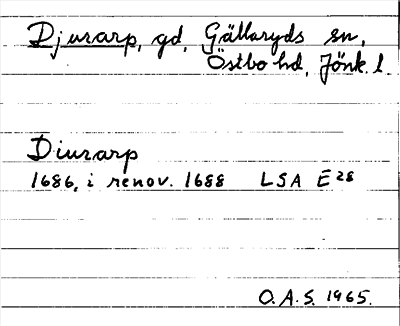 Djurarp, gd, Gällaryds sn,
Östbo hd, Jönk. l.
Diurarp
1686, i renov. 1688 LSA E28
O.A.S. 1965.